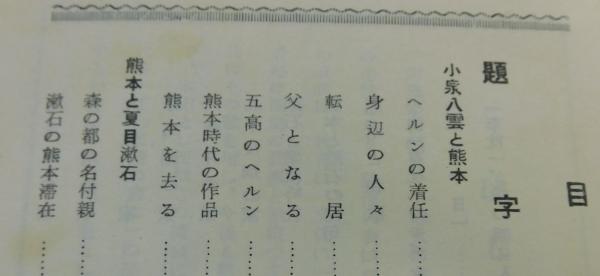 目
題字
小泉八雲と熊本
ヘルンの着任……
身辺の人々……
転居……
父となる……
五高のヘルン……
熊本時代の作品……
熊本を去る……
熊本と夏目漱石
森の都の名付親……
漱石の熊本滞在……